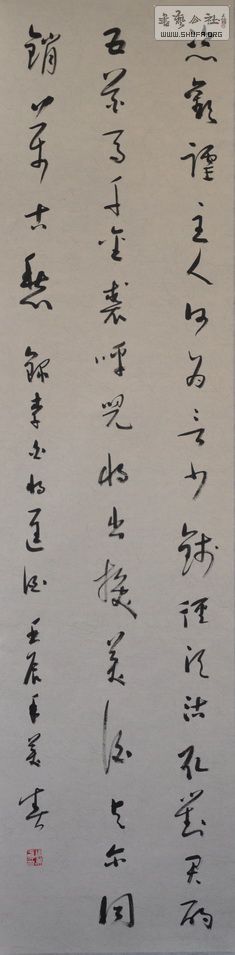 書藝公社
WWW.SHUFA.ORG
恣歡謔主人何為言少錢徑須沽取對君酌
五花馬千金裘呼兒將出換美酒与尔同
銷萬古愁 錄李白將進酒 壬辰年